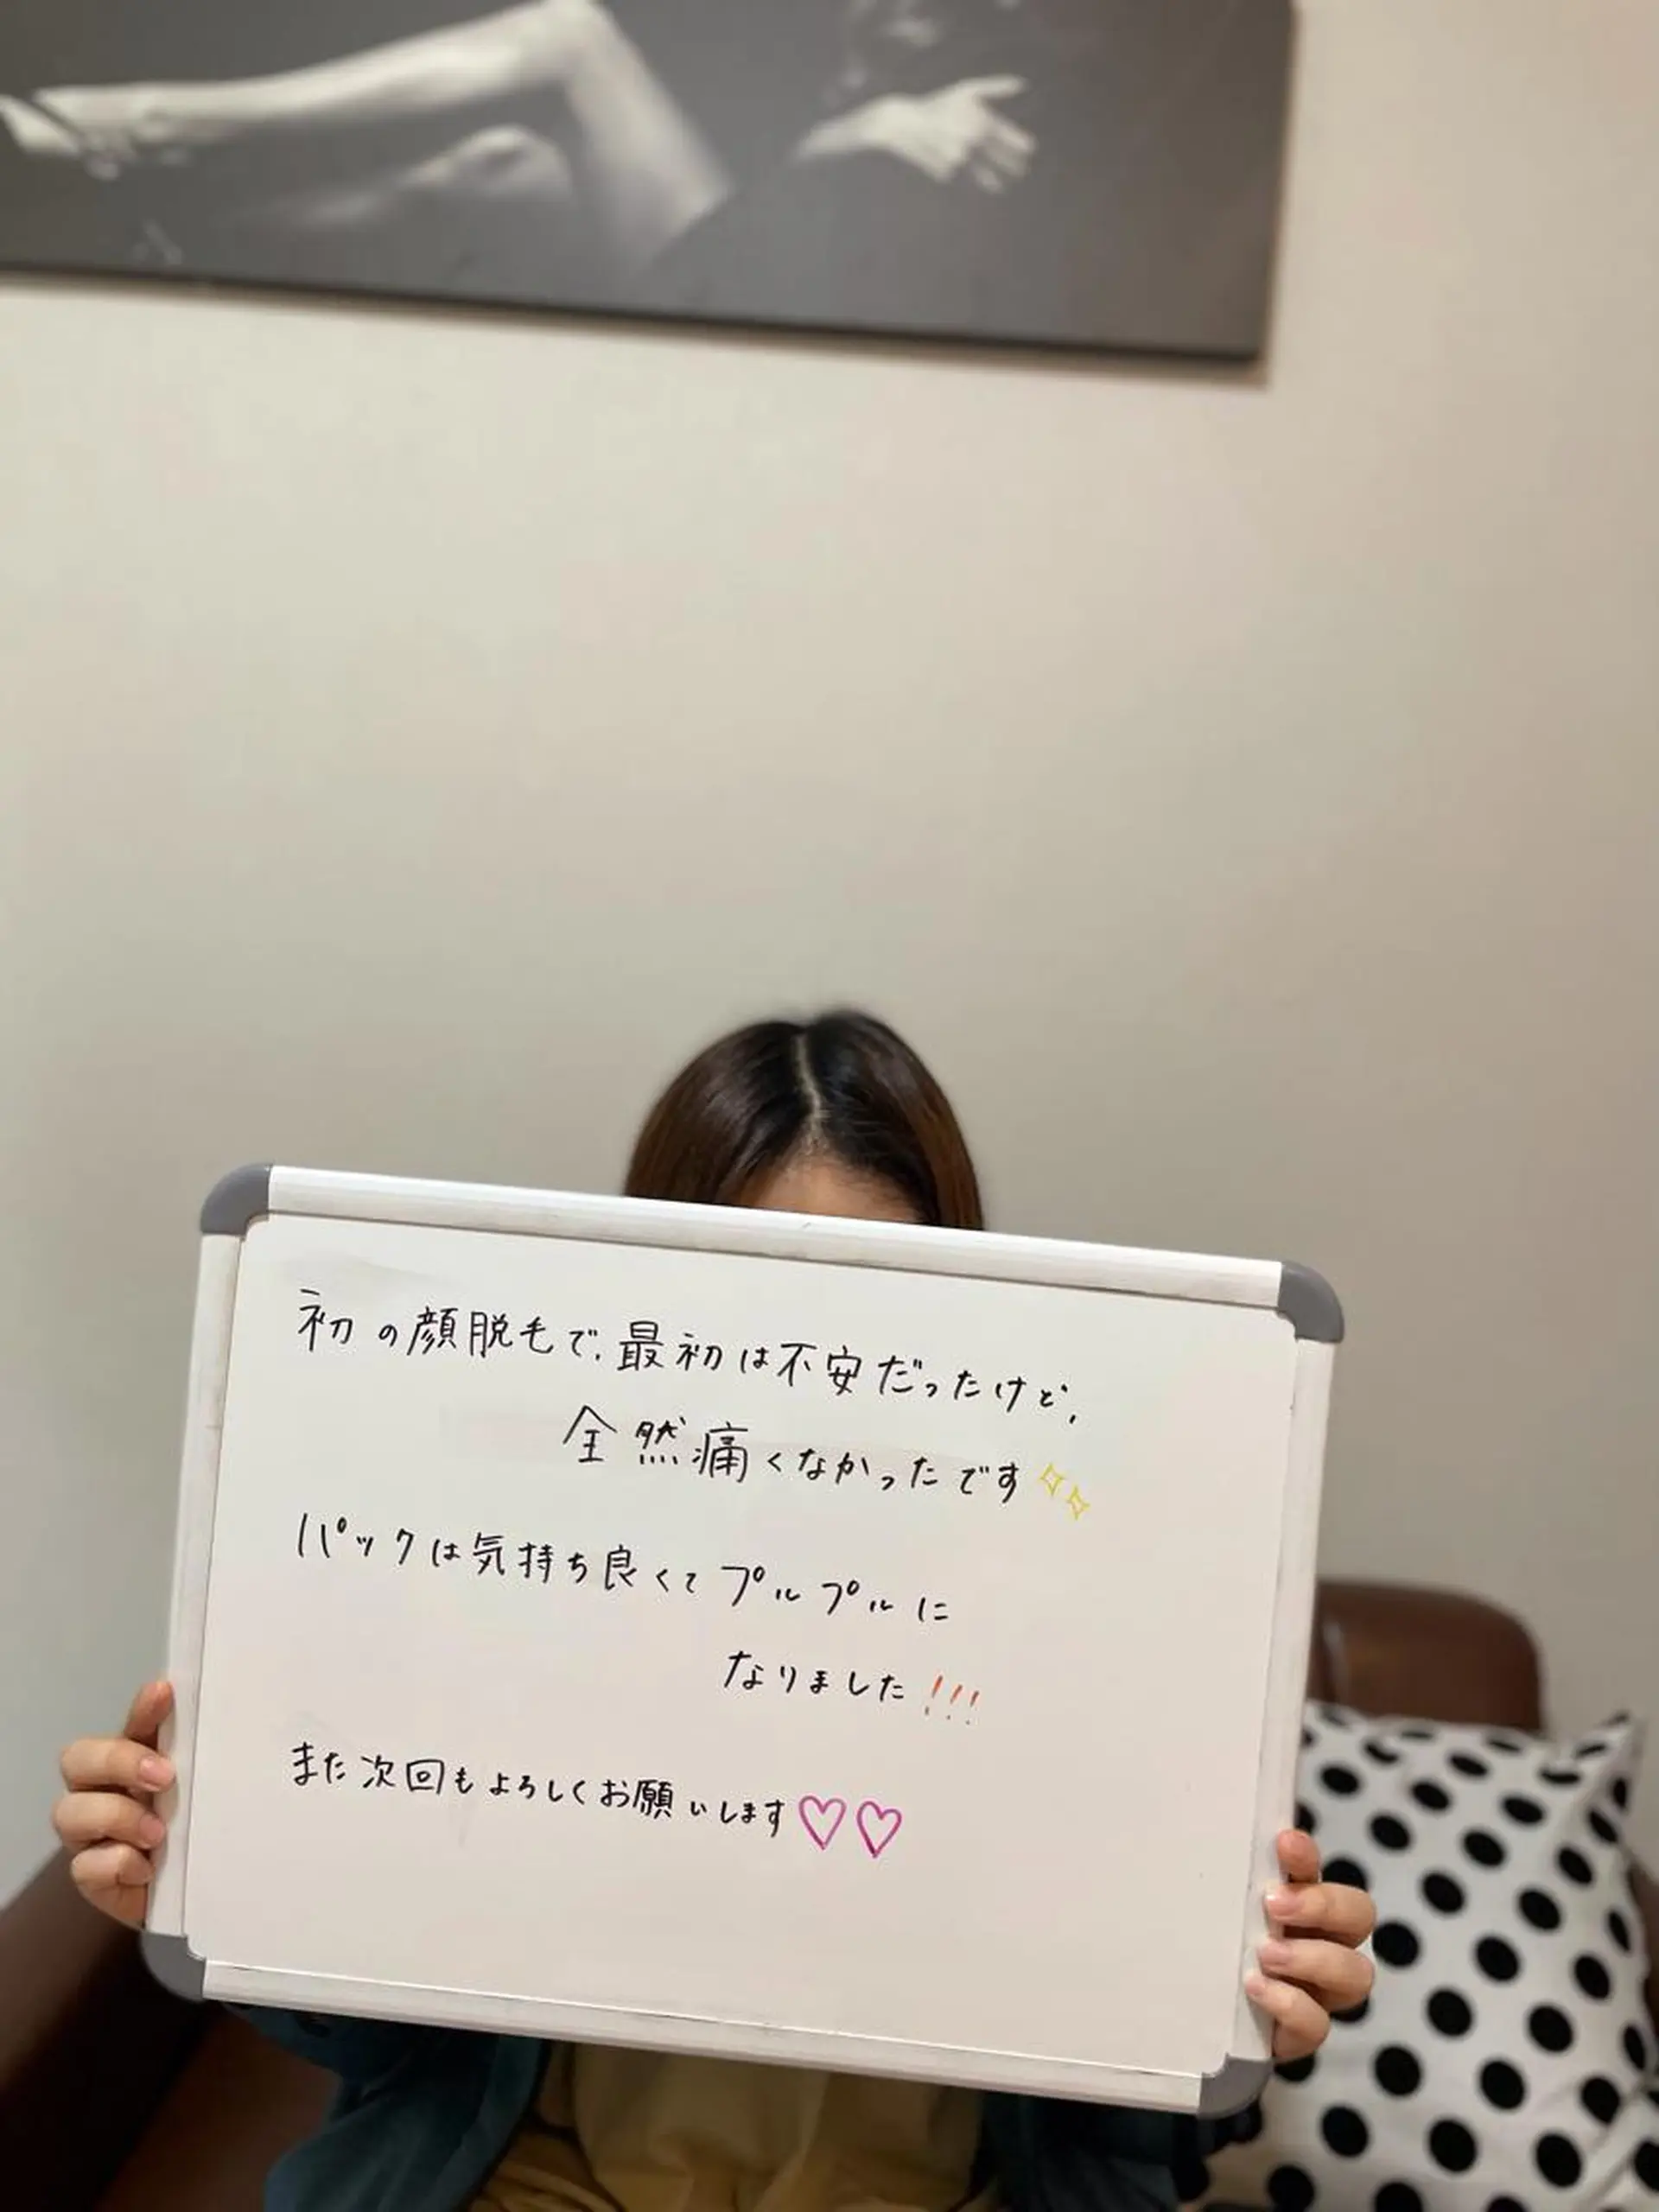 初の顔脱毛で、最初は不安だったけど、
全然痛くなかったです
パックは気持ち良くてプルプルに
なりました!!!
また次回もよろしくお願いします♡♡